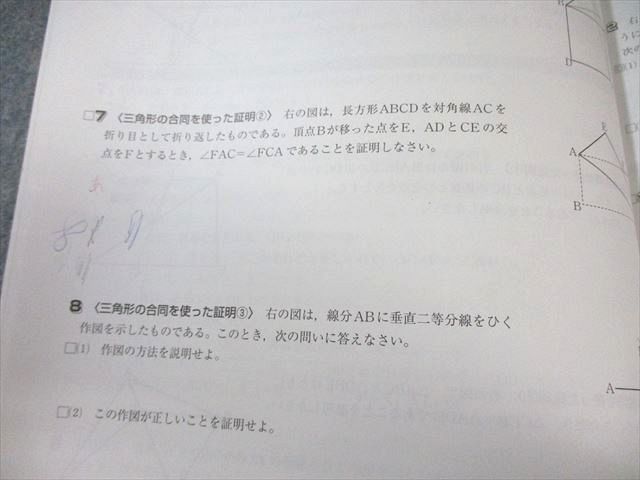 □7 〈三角形の合同を使った証明②〉 右の図は，長方形ABCDを対角線ACを
折り目として折り返したものである。頂点Bが移った点をE，ADとCEの交
点をFとするとき，∠FAC=∠FCAであることを証明しなさい。
8 〈三角形の合同を使った証明③〉 右の図は，線分ABに垂直二等分線をひく
作図を示したものである。このとき，次の問いに答えなさい。
□(1) 作図の方法を説明せよ。
□(2) この作図が正しいことを証明せよ。
D
E
A
B
A
右
うに
次の
(1)